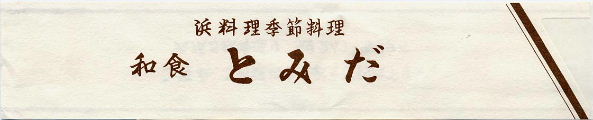 浜料理季節料理
和食 とみだ